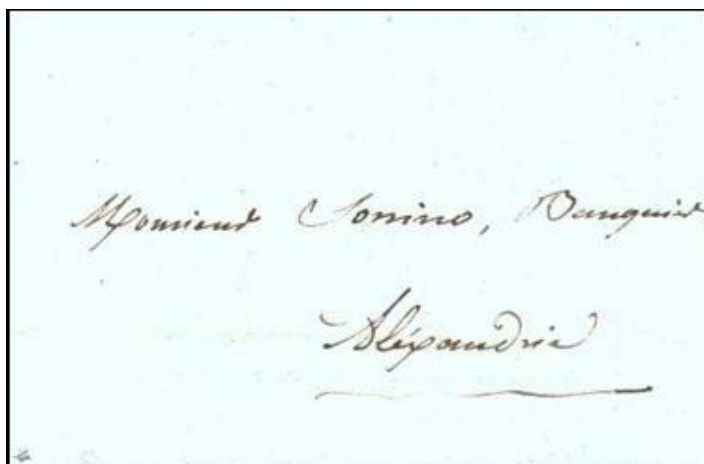 Monsieur Sonino, Banquier
Aléxandrie